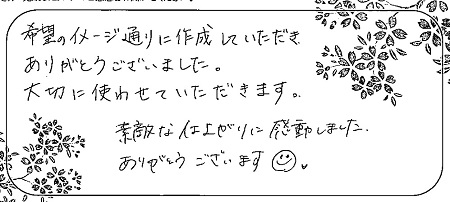 希望のイメージ通りに作成していただき
ありがとうございました。
大切に使わせていただきます。
素敵な仕上がりに感動しました.
ありがとうございます☺.